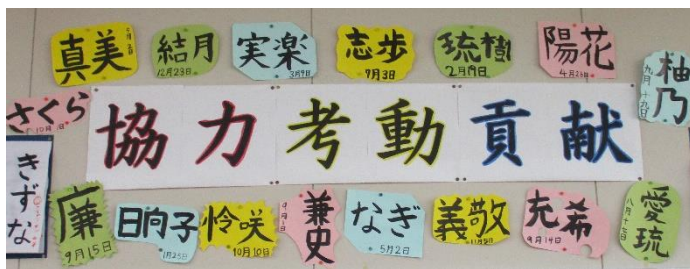 真美
結月
12月23日
実楽
3月9日
志歩
9月3日
琉樹
2月19日
陽花
柚乃
九月十九日
さくら
協力考動貢献
きずな
廉
9月15日
日向子
1月25日
怜咲
10月10日
兼史
なぎ
5月2日
義敬
充希
9月14日
愛琉